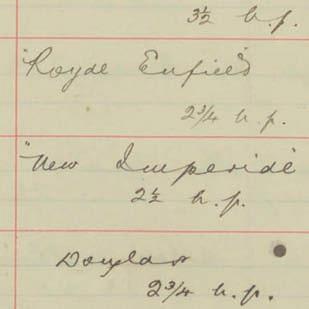 3½ h.p.
"Royal Enfield"
2¾ h.p.
"New Imperial"
2½ h.p.
Douglas
2¾ h.p.